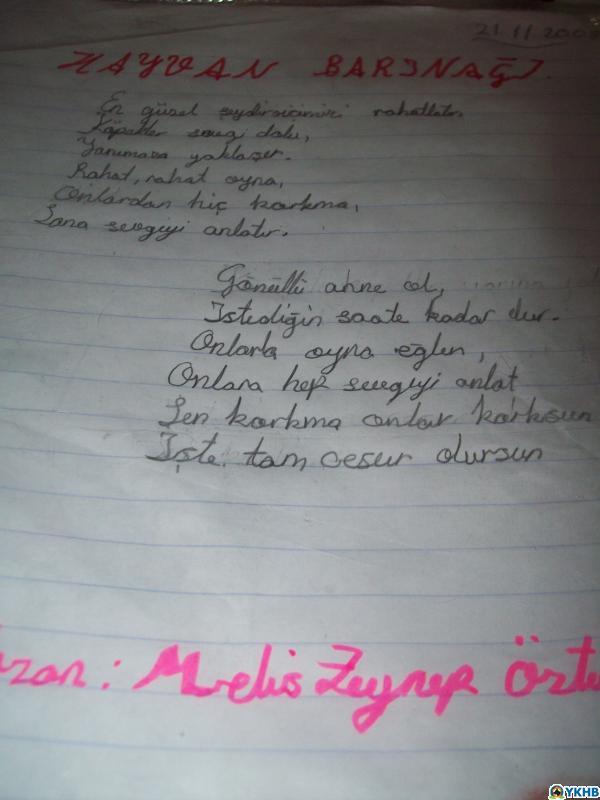 21.11.200
HAYVAN BARINAĞI.
En güzel şeydir içimizi rahatlatır.
Köpekler sevgi dolu,
Yanımasa yaklaşır.
Rahat, rahat oyna,
Onlardan hiç korkma,
Sana sevgiyi anlatır.
Gönüllü ahne ol,
İstediğin saate kadar dur.
Onlarla oyna eğlen,
Onlara hep sevgiyi anlat
Sen korkma onlar korksun
İşte tam cesur olursun
zan: Melis Zeynep Öztü
YKHB